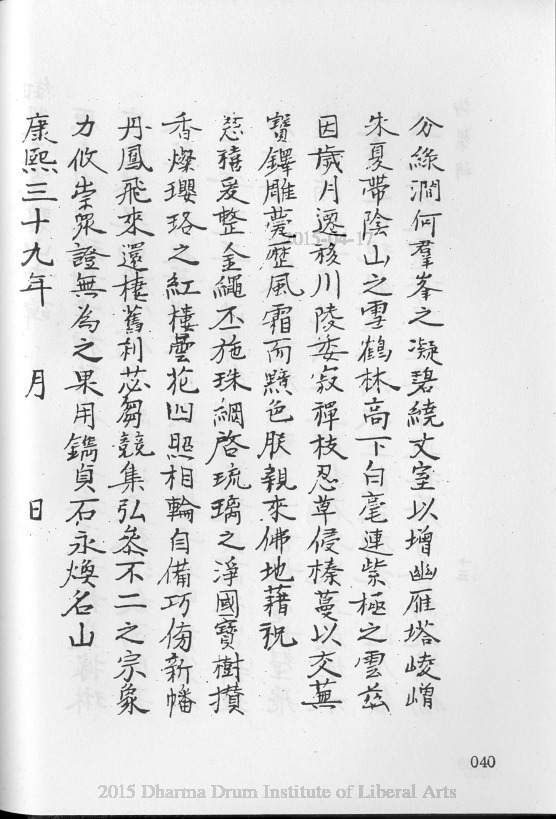 分綠澗何羣峯之凝碧繞丈室以增幽雁塔崚嶒
朱夏帶陰山之雪鶴林高下白毫連紫極之雲茲
因歲月遷移川陵委寂禪枝忍草侵榛蔓以交蕪
寶鐸雕甍歷風霜而黯色朕親來佛地藉祝
慈禧爰整金繩丕施珠網啓琉璃之淨國寶樹攢
香燦瓔珞之紅樓曇花四照相輪自備巧傍新幡
丹鳳飛來還棲舊刹苾芻競集弘叅不二之宗象
力攸崇眾證無為之果用鐫貞石永煥名山
康熙三十九年 月 日
2015-04-17
040
2015 Dharma Drum Institute of Liberal Arts